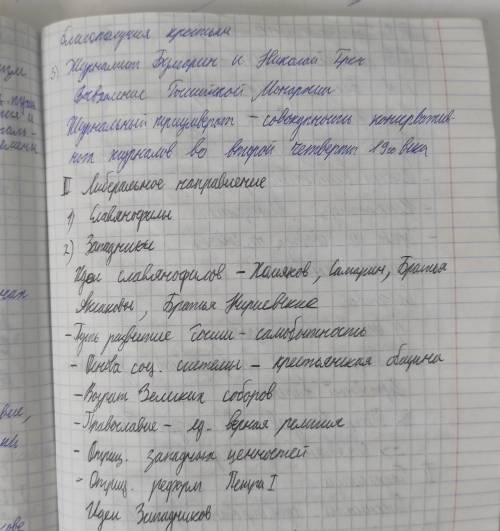 благополучия крестьян
5) Журналист Булгарин и Николай Греч
Восхваление Российской Монархии
Журнальный триумвират – совокупность консерватив-
ных журналов во второй четверти 19го века
II Либеральное направление
1) Славянофилы
2) Западники
Идеи славянофилов – Хомяков, Самарин, Братья
Аксаковы, Братья Киреевские
- Путь развитие России - самобытность
- Основа соц. системы – крестьянская община
- Возрат Земских соборов
- Православие – ед. верная религия
- Отриц. западных ценностей
- Отриц. реформ Петра I
Идеи Западников